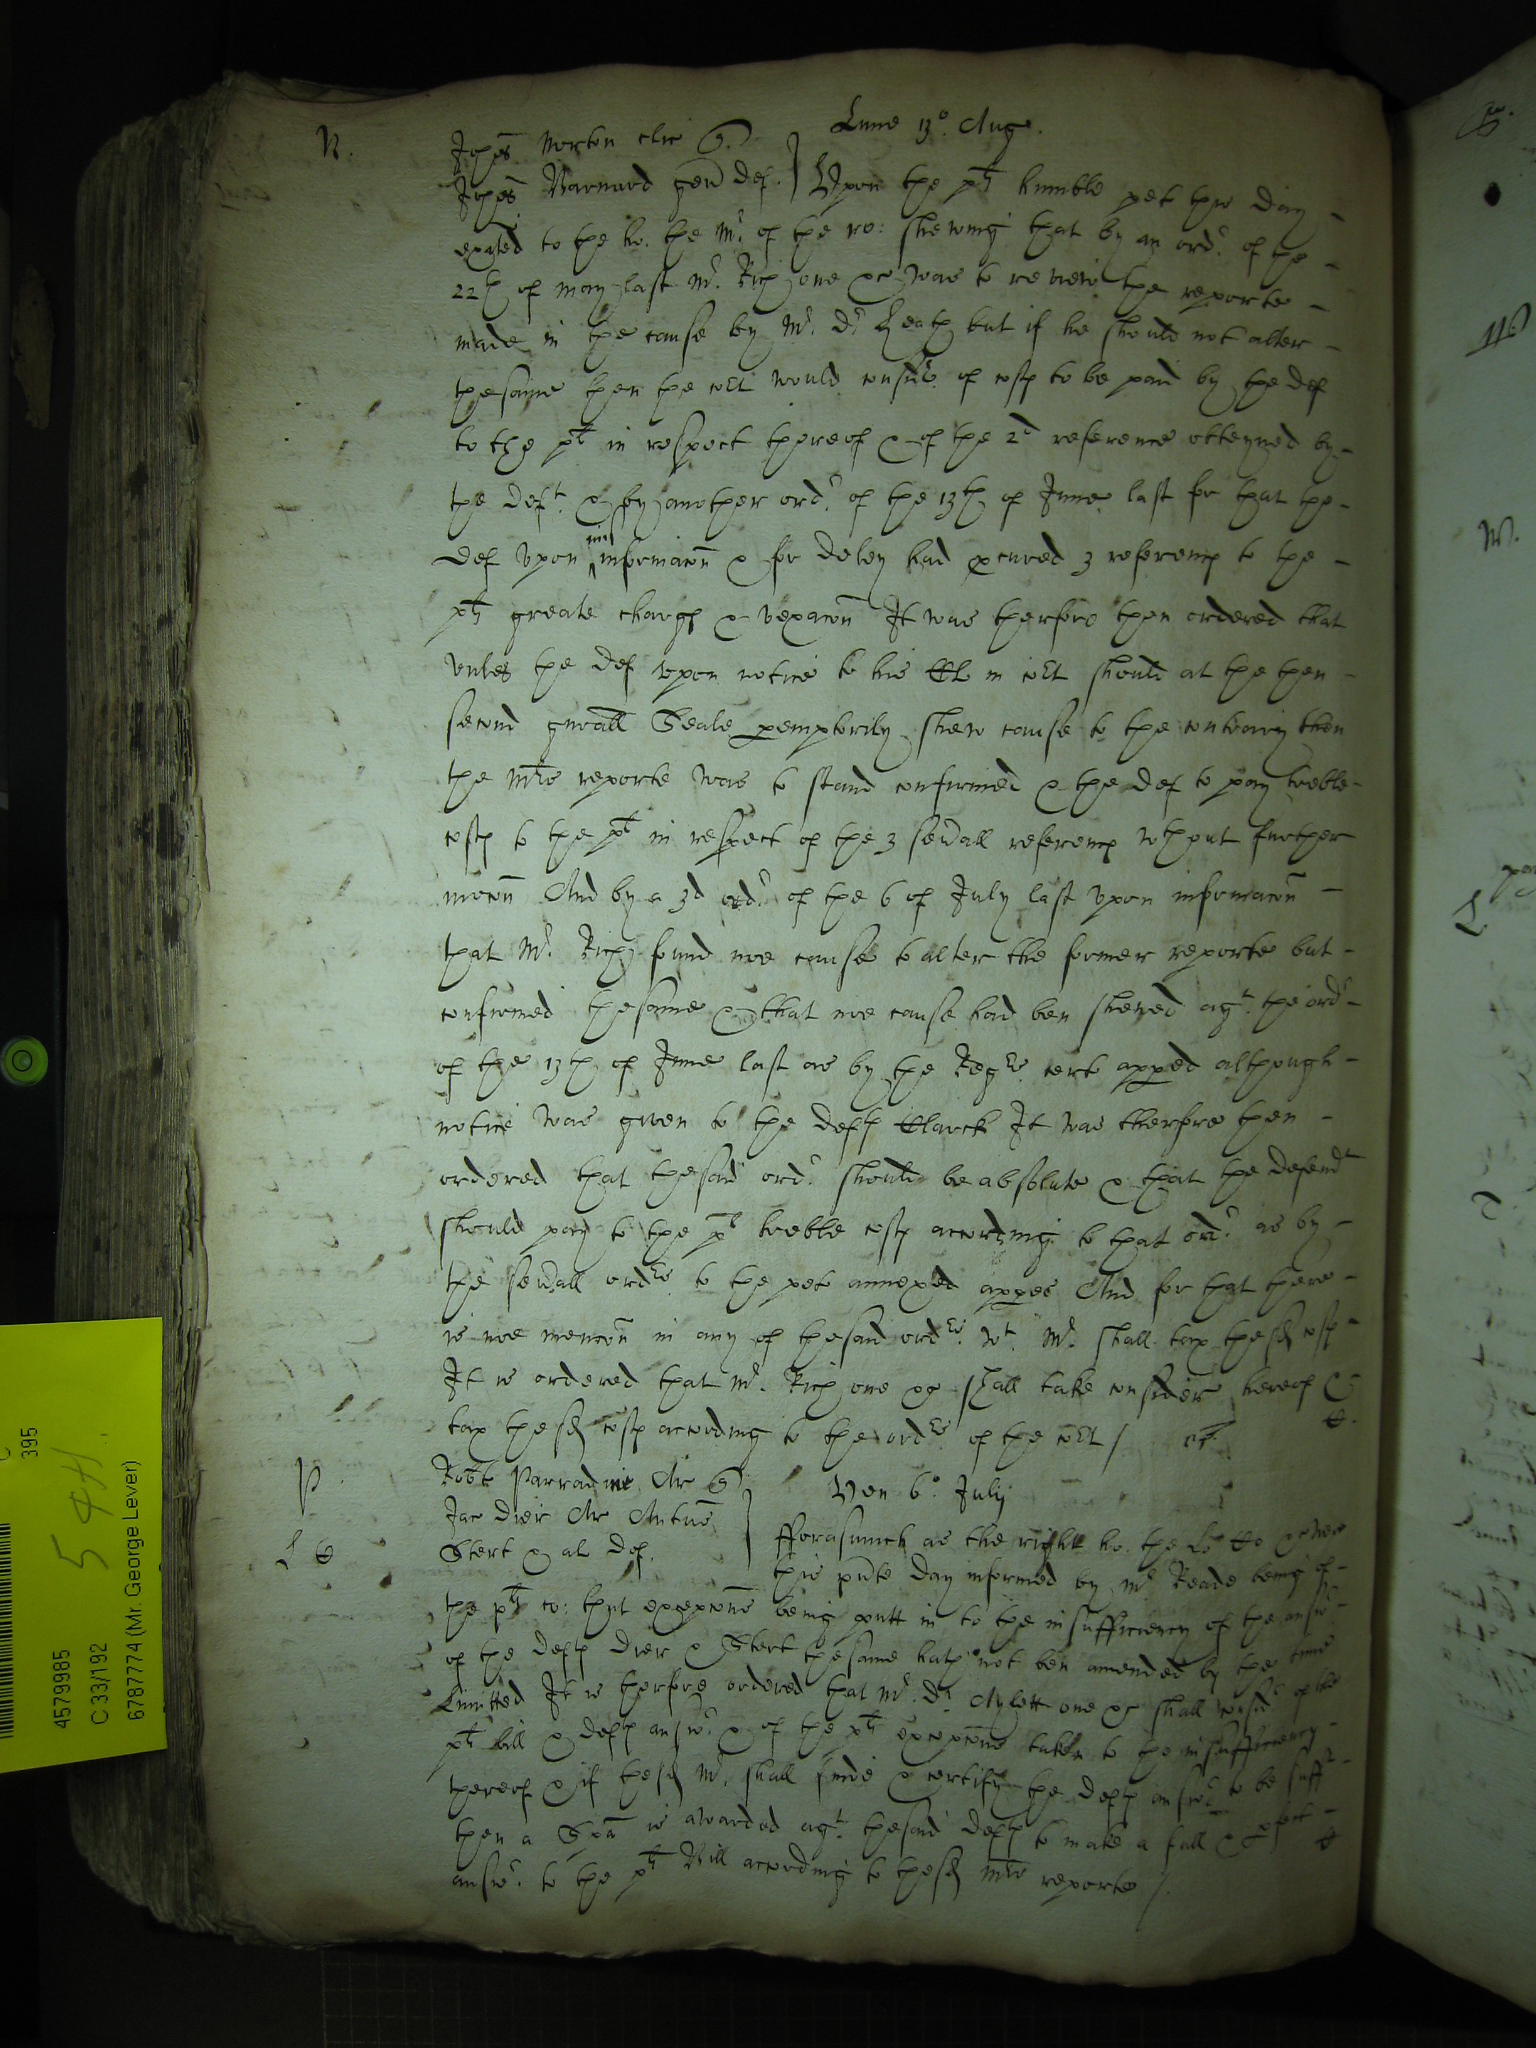 N.
Lune 13°. Aug.
Johes Norton clic q
Johes Barnard gen def. } Upon the plt humble pet this day
exhited to the ho. the Mr of the ro: shewing that by an ordr of the
22th of may last Mr. Rich one &c was to review the reporte
made in the cause by Mr. Dr. Heath but if he should not alter
thesame then the cort would consider of costs to be paid by the def
to the plt in respect thereof & of the 2d reference obteyned by
the deft. & by another ordr of the 13th of June last for that the
def upon mis informacon & for deley had pcured 3 references to the
plts greate charge & vexacon It was therfore then ordered that
unles the def upon notice to his Clk in cort should at the then
second gnrall Seale pemptorily shew cause to the contrary then
the Mrs reporte was to stand confirmed & the def to pay treble
costs to the plt in respect of the 3 sevall references wthout further
mocon And by a 3d ordr of the 6 of July last upon informacon
that Mr. Rich found noe cause to alter the former reporte but
confirmed thesame & that noe cause had ben shewed agt. the ordr
of the 13th of June last as by the Regrs. cert apped although
notice was given to the defts Clarck It was therfore then
ordered that thesaid ordr should be absolute & that the defendt
should pay to the plt treble costs according to that ordr as by
the sevall ordrs to the pet annexed appes And for that there
is noe mencon in any of thesaid ordrs. wt. Mr. shall tax thesd costs
It is ordered that Mr. Rich one &c shall take consider hereof &
tax thesd costs according to the ordrs of the cort /
P.
Robt Parradine Ar q
Ven 6°. July
Jac Dier Ar Antho
Stert & al def.
fforasmuch as the right ho. the Lo
this pnte day informed by Mr Reade being of
the plts co: that excepcons being putt in to the insufficiency of the answr
of the defts Dier & Stert thesame hath not ben amended by the time
Limitted It is therfore ordered that Mr. Dr. Aylett one &c shall consider of the
plts bill & defts answr & of the plts excepcons taken to the insufficiency
thereof & if thesd Mr. shall finde & certify the defts answr to be insuff
then a Spa is awarded agt. thesaid defts to make a full & pfect
answr. to the plts Bill according to thesd Mrs reporte /.
395
4579985
C 33/192
6787774 (Mr. George Lever)